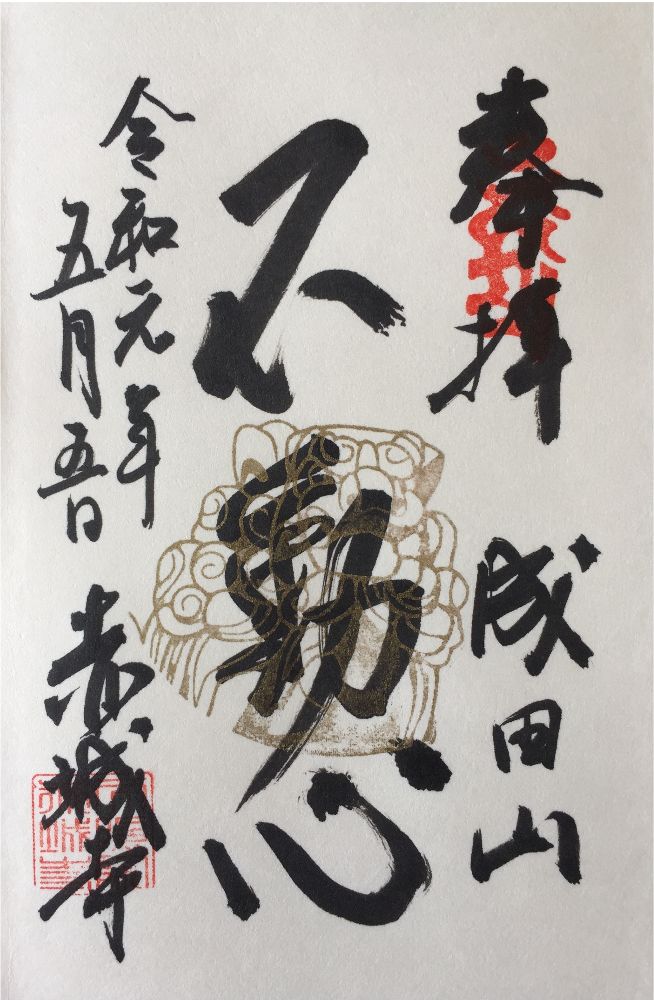 奉拝
成田山
不動心
令和元年
五月五日
赤城寺